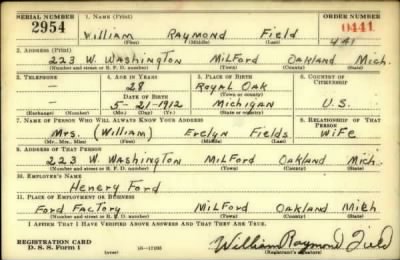 SERIAL NUMBER 1. NAME (Print) ORDER NUMBER
2954 William Raymond Field 0441
(First) (Middle) (Last) 441
2. ADDRESS (Print)
223 W. Washington Milford Oakland Mich.
(Number and street or R. F. D. number) (Town) (County) (State)
3. TELEPHONE 4. AGE IN YEARS 5. PLACE OF BIRTH 6. COUNTRY OF CITIZENSHIP
— 28 Royal Oak
DATE OF BIRTH (Town or county)
— 5-21-1912 Michigan U.S.
(Exchange) (Number) (Mo.) (Day) (Yr.) (State or country)
7. NAME OF PERSON WHO WILL ALWAYS KNOW YOUR ADDRESS 8. RELATIONSHIP OF THAT PERSON
Mrs. (William) Evelyn Fields Wife
(Mr., Mrs., Miss) (First) (Middle) (Last)
9. ADDRESS OF THAT PERSON
223 W. Washington Milford Oakland Mich.
(Number and street or R. F. D. number) (Town) (County) (State)
10. EMPLOYER'S NAME
Henery Ford
11. PLACE OF EMPLOYMENT OR BUSINESS
Ford Factory Milford Oakland Mich
(Number and street or R. F. D. number) (Town) (County) (State)
I AFFIRM THAT I HAVE VERIFIED ABOVE ANSWERS AND THAT THEY ARE TRUE.
REGISTRATION CARD
D. S. S. Form 1 William Raymond Field
(over) (Registrant's signature)